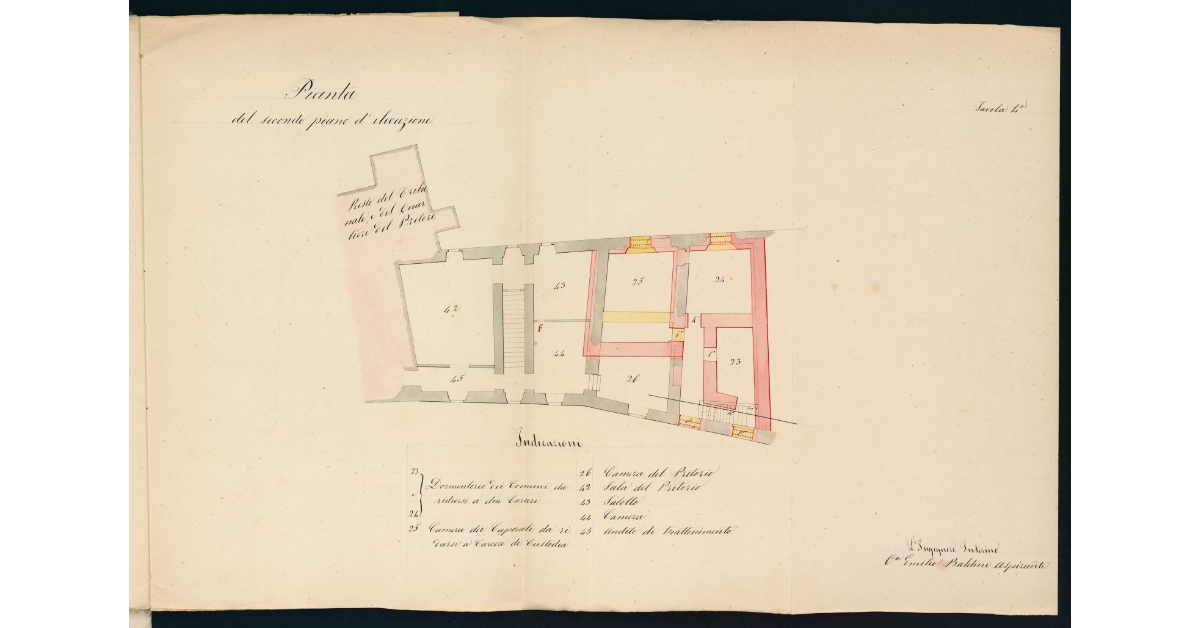 Pianta
del secondo piano d'elevazione
Tavola 4a
Resto del Tribu
nale, e del Quar
tiere del Pretore
42
43
25
24
f
44
45
26
23
Indicazioni
23
e
24
Dormentorio dei Comuni da
ridursi a due Carceri
25 Camera dei Caporali da ri
dursi a Carcere di Custodia
26 Camera del Pretorio
42 Sala del Pretorio
43 Salotto
44 Camera
45 Andito di trattenimento
L'Ingegnere Interino
Emilio Baldini Aspirante